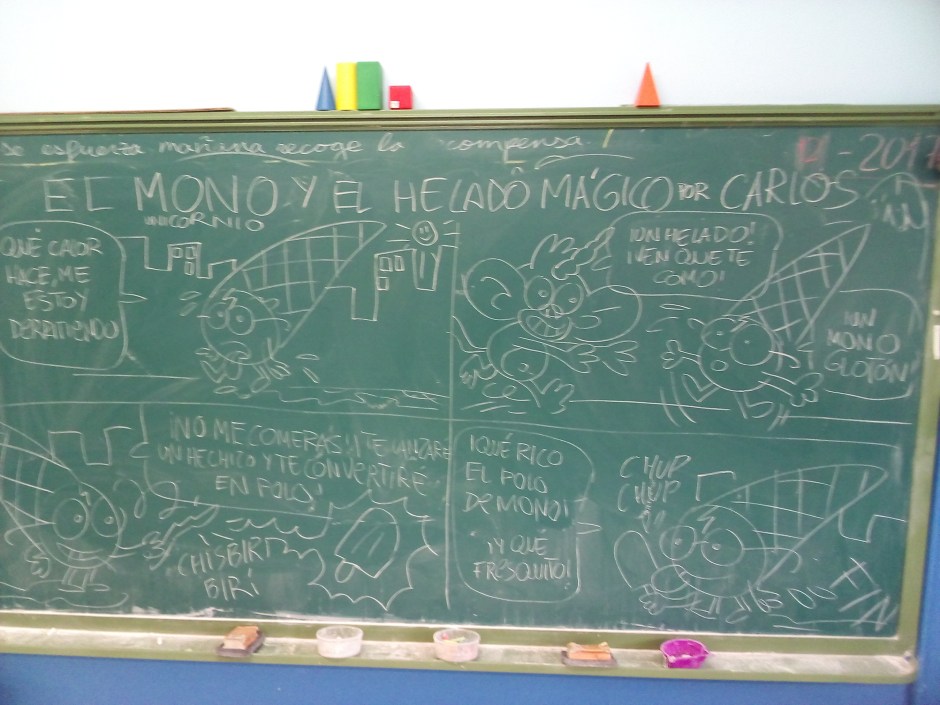 se esfuerza mañana recoge la compensa!
- 201
EL MONO Y EL HELADO MÁGICO POR CARLOS
UNICORNIO
QUÉ CALOR
HACE, ME
ESTOY
DERRITIENDO
¡UN HELADO!
¡VEN QUE TE
COMO!
¡UN
MONO
GLOTÓN!
¡NO ME COMERÁS! ¡TE LANZARÉ
UN HECHIZO Y TE CONVERTIRÉ
EN POLO!
¡CHISBIRI
BIRI
¡QUÉ RICO
EL POLO
DE MONO!
¡Y QUE
FRESQUITO!
CHUP
CHUP
FIN